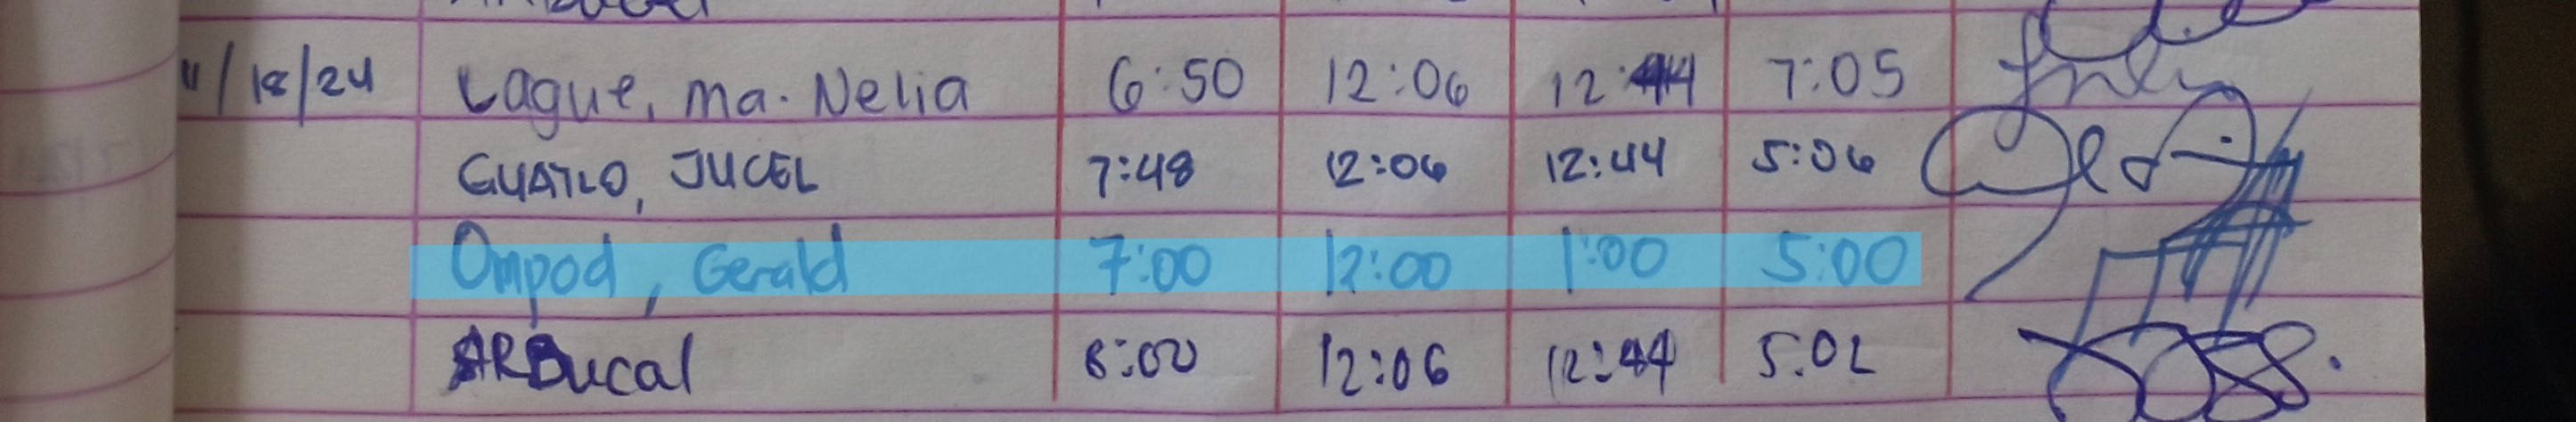 11/18/24 Lague, ma. Nelia 6:50 12:06 12:44 7:05
GUATLO, JUCEL 7:48 12:06 12:44 5:06
Ompod, Gerald 7:00 12:00 1:00 5:00
ARBucal 8:00 12:06 12:44 5:02